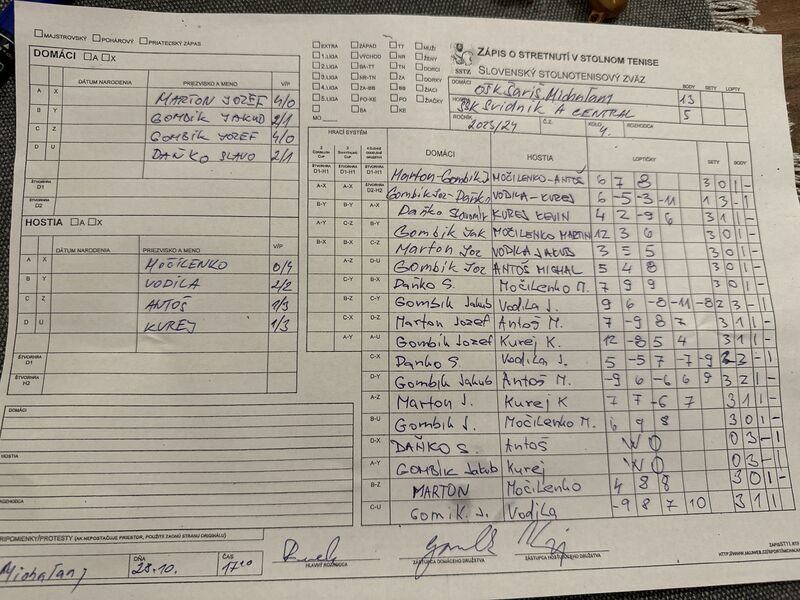 MAJSTROVSKÝ POHÁROVÝ PRIATEĽSKÝ ZÁPAS
DOMÁCI A X
DÁTUM NARODENIA PRIEZVISKO A MENO V/P
A X MARTON JOZEF 4/0
B Y GOMBÍK JAKUB 2/1
C Z GOMBÍK JOZEF 4/0
D U DAŇKO SLAVO 2/1
ŠTVORHRA D1
ŠTVORHRA D2
HOSTIA A X
DÁTUM NARODENIA PRIEZVISKO A MENO V/P
A X MOČILENKO 0/4
B Y VODILA 2/2
C Z ANTOŠ 1/3
D U KUREJ 1/3
ŠTVORHRA D1
ŠTVORHRA H2
DOMÁCI
HOSTIA
ROZHODCA
PRIPOMIENKY/PROTESTY (AK NEPOSTAČUJE PRIESTOR, POUŽITE ZADNÚ STRANU ORIGINÁLU)
Michaľany DŇA 28.10. ČAS 17:10
EXTRA ZÁPAD TT MUŽI
1.LIGA VÝCHOD NR ŽENY
2.LIGA BA-TT TN DORCI
3.LIGA NR-TN ZA DORKY
4.LIGA ZA-BB BB ŽIACI
5.LIGA PO-KE PO ŽIAČKY
BA KE
MO
ZÁPIS O STRETNUTÍ V STOLNOM TENISE
SSTZ SLOVENSKÝ STOLNOTENISOVÝ ZVÄZ
DOMÁCI OŠK Šariš Michaľany BODY 13 SETY LOPTY
HOSTIA ŠŠK Svidník A CENTRAL 5
ROČNÍK 2023/24 Č.Z. KOLO 4. ROZHODCA
HRACÍ SYSTÉM DOMÁCI HOSTIA LOPTIČKY SETY BODY
ŠTVORHRA D1-H1 ŠTVORHRA D1-H1 ŠTVORHRA D1-H1 Marton-Gombík J MOČILENKO-ANTOŠ 6 7 8 3 0 1 -
A-X A-X ŠTVORHRA D2-H2 Gombík Joz-Daňko VODILA-KUREJ 6 -5 -3 -11 1 3 - 1
B-Y B-Y A-X Daňko KUREJ KEVIN 4 2 -9 6 3 1 1
A-Y C-Z B-Y Gombík Jak MOČILENKO MARTIN 12 3 6 3 0 1 -
B-X B-X C-Z Marton Joz VODILA JAKUB 3 5 5 3 0 1 -
A-Z D-U Gombík Joz ANTOŠ MICHAL 5 4 8 3 0 1 -
C-Y B-X Daňko S. Močilenko M. 7 9 9 3 0 1 -
B-Z C-Y Gombík Jakub Vodila J. 9 6 -8 -11 -8 2 3 - 1
C-X D-Z Marton Jozef Antoš M. 7 -9 8 7 3 1 1 -
A-Y A-U Gombík Jozef Kurej K. 12 -8 5 4 3 1 1 -
C-X Danko S. Vodila J. 5 -5 7 -7 -9 2 3 - 1
D-Y Gombík Jakub Antoš M. -9 6 -6 6 9 3 2 1 -
A-Z Marton J. Kurej K 7 7 -6 7 3 1 1 -
B-U Gombík J. Močilenko M. 6 9 8 3 0 1 -
D-X DAŇKO S. Antoš WO 0 3 - 1
A-Y GOMBÍK Jakub Kurej WO 0 3 - 1
B-Z MARTON Močilenko 4 8 8 3 0 1 -
C-U Gomik J. Vodila -9 8 7 10 3 1 1 -
HLAVNÝ ROZHODCA ZÁSTUPCA DOMÁCEHO DRUŽSTVA ZÁSTUPCA HOSŤUJÚCEHO DRUŽSTVA